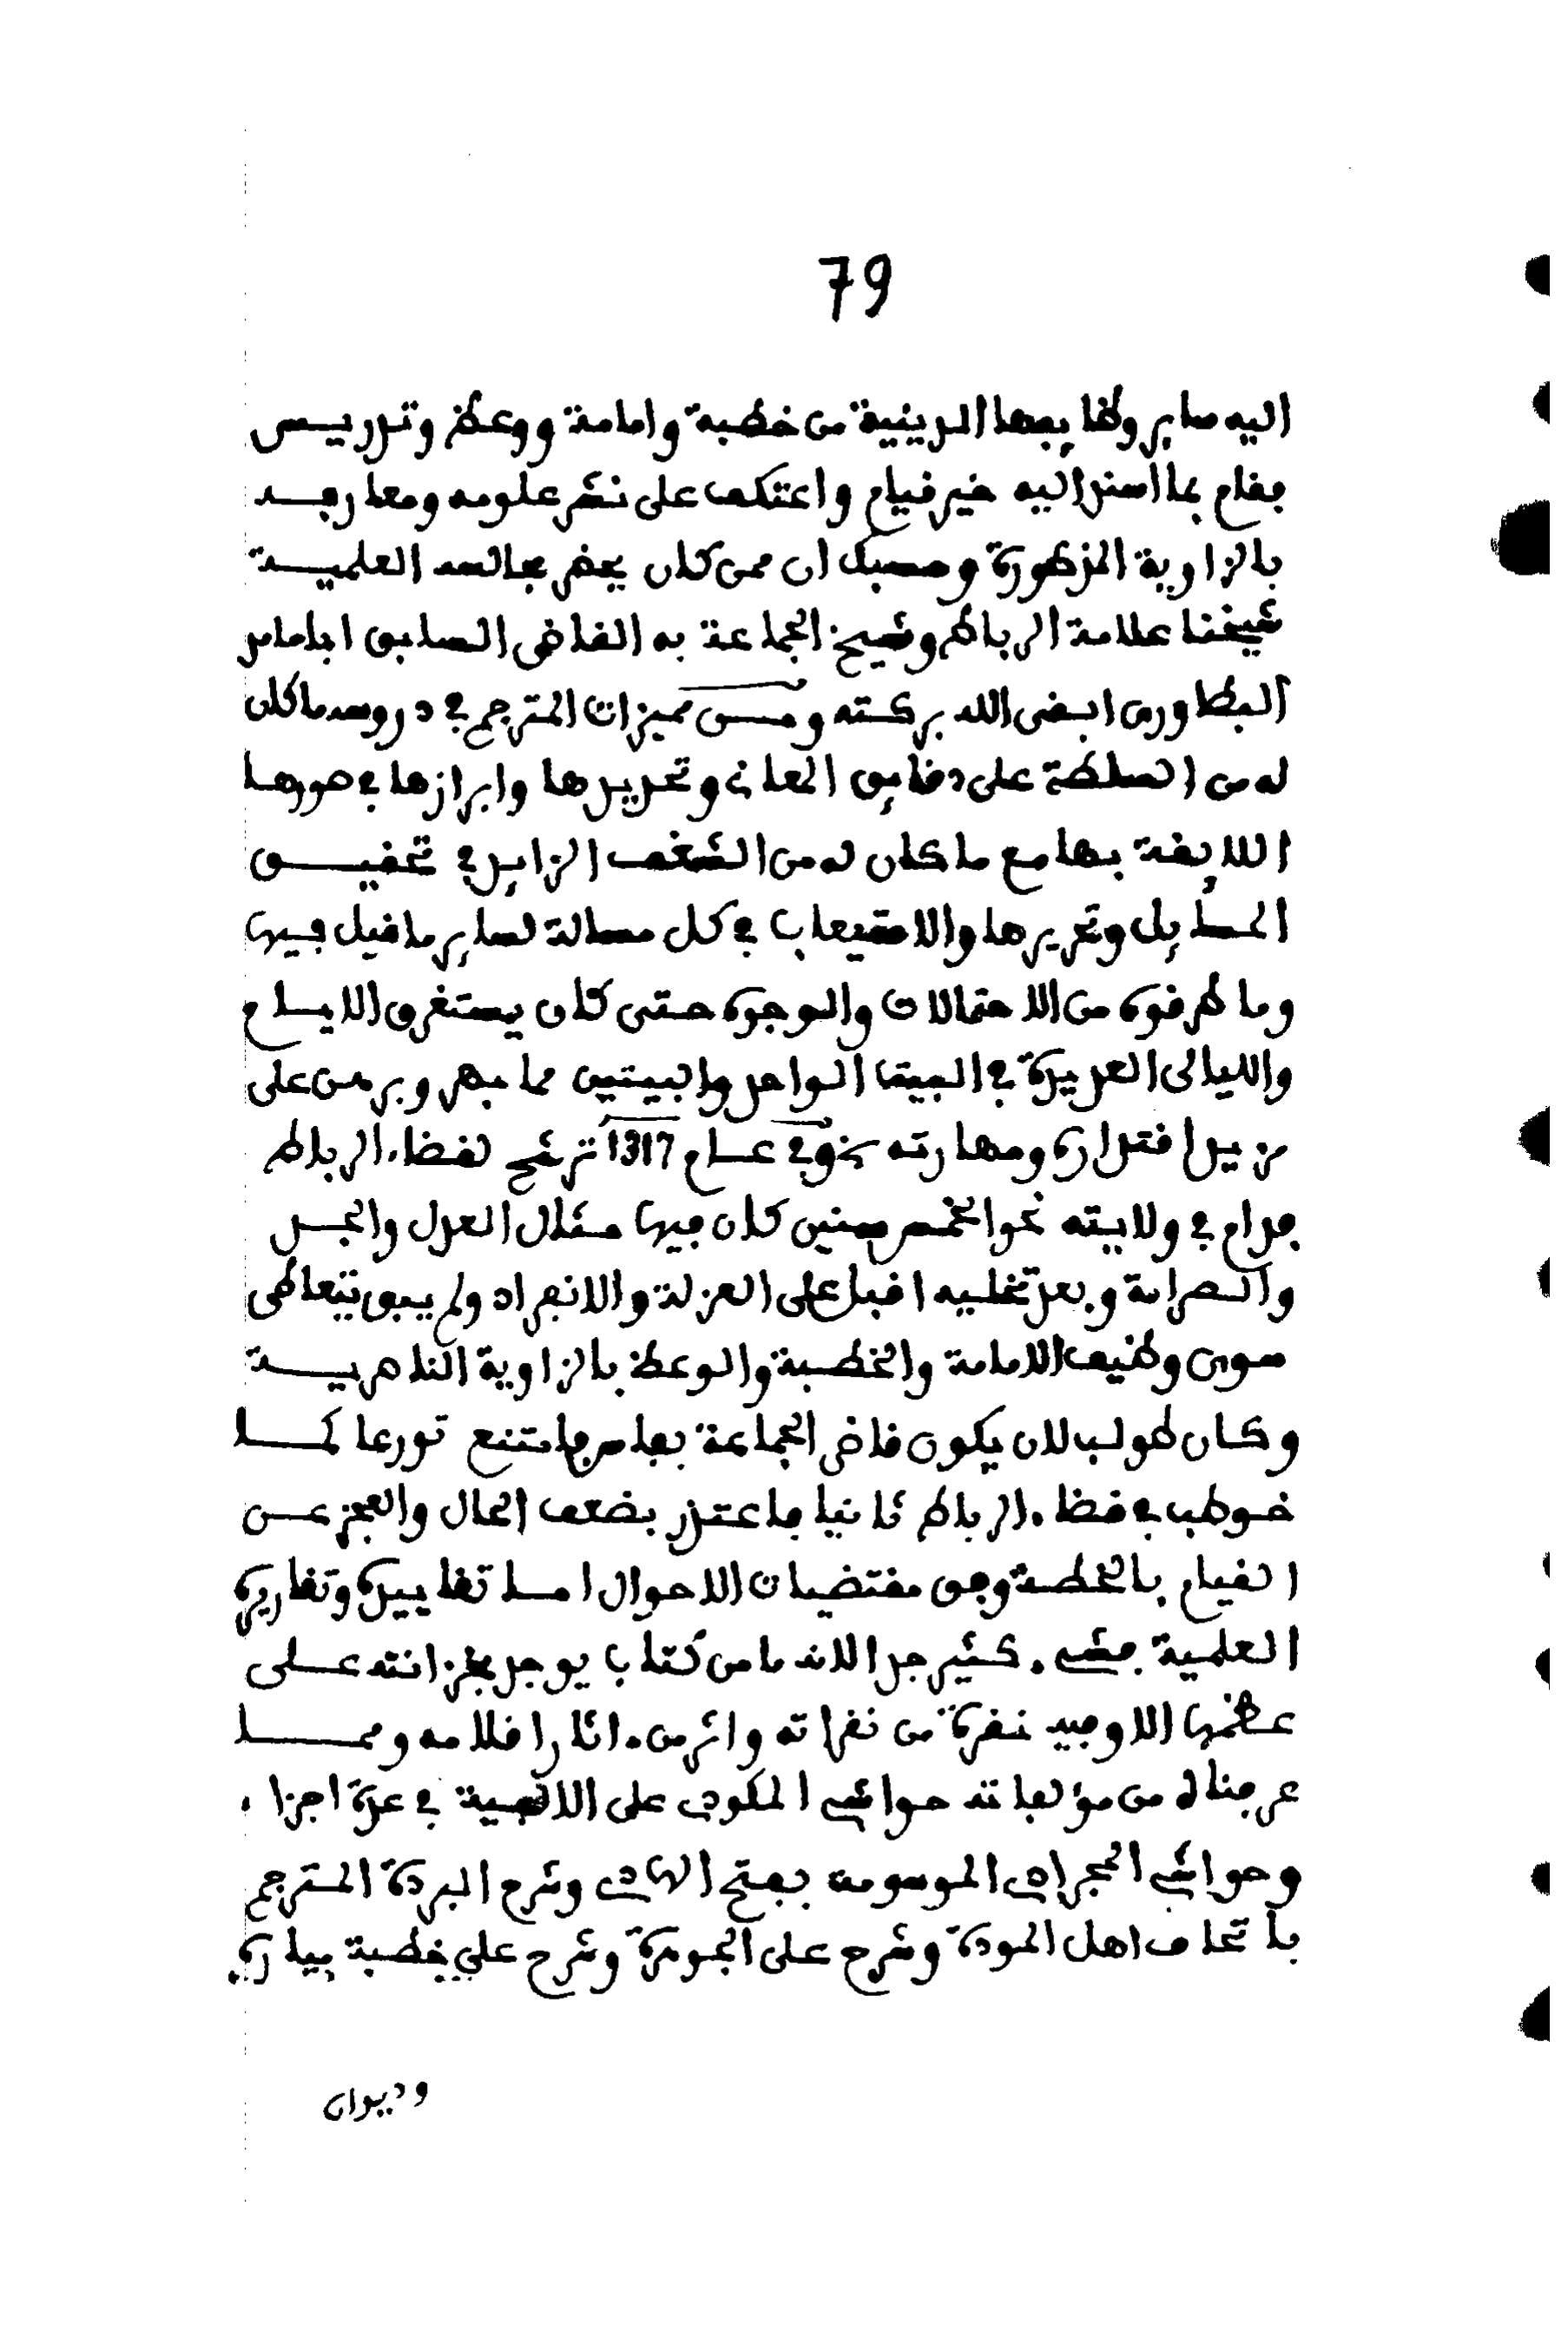 79
اليه ساير وظايفها الدينية من خطبة وامامة ووعظ وتدريس
فقام بما اسند اليه خير قيام واعتكف على نشر علومه ومعارفه
بالزاوية المذكورة وحسبك ان ممن كان يحضر مجالسه العلمية
شيخنا علامة الرباط وشيخ الجماعة به القاضي السابق ابا حامد
البطاوري ابقى الله بركته ومن مميزات المترجم في دروسه ما كان
له من السلطة على دقايق المعاني وتحريرها وابرازها في صورها
اللايقة بها مع ما كان له من الشغف الزايد في تحقيق
المسايل وتحريرها والاستيعاب في كل مسالة لساير ما قيل فيها
وما طرقوه من الاحتمالات والوجوه حتى كان يستغرق الايام
والليالى العديدة في البيت الواحد والبيتين مما بهر وبرهن على
مزيد اقتداره ومهارته نحو في عام 1317 ترشح لقضاء الرباط
فدام في ولايته نحو الخمس سنين كان فيها مثال العدل والجد
والصرامة وبعد تخليه اقبل على العزلة والانفراد ولم يبق يتعاطى
سوى وظيف الامامة والخطبة والوعظ بالزاوية الناصرية
وكان طولب لان يكون قاضي الجماعة بفاس فامتنع تورعا كما
خوطب في قضاء الرباط ثانيا فاعتذر بضعف الحال والعجز عن
القيام بالخطة وفق مقتضيات الاحوال اما تقاييده وتقاريره
العلمية فشيء كثير جدا لانه ما من كتاب يوجد بخزانته على
عظمها الا وفيه نفرة من نفراته واثر من ءاثار اقلامه ومما
عرفنا له من مؤلفاته حواشي المكودي على الالفية في عدة اجزاء
وحواشي المجرادي الموسومة بفتح الهادي وشرح البردة المترجم
باتحاف اهل المودة وشرح على الجوهرة وشرح على خطبة ميارة
وديوان